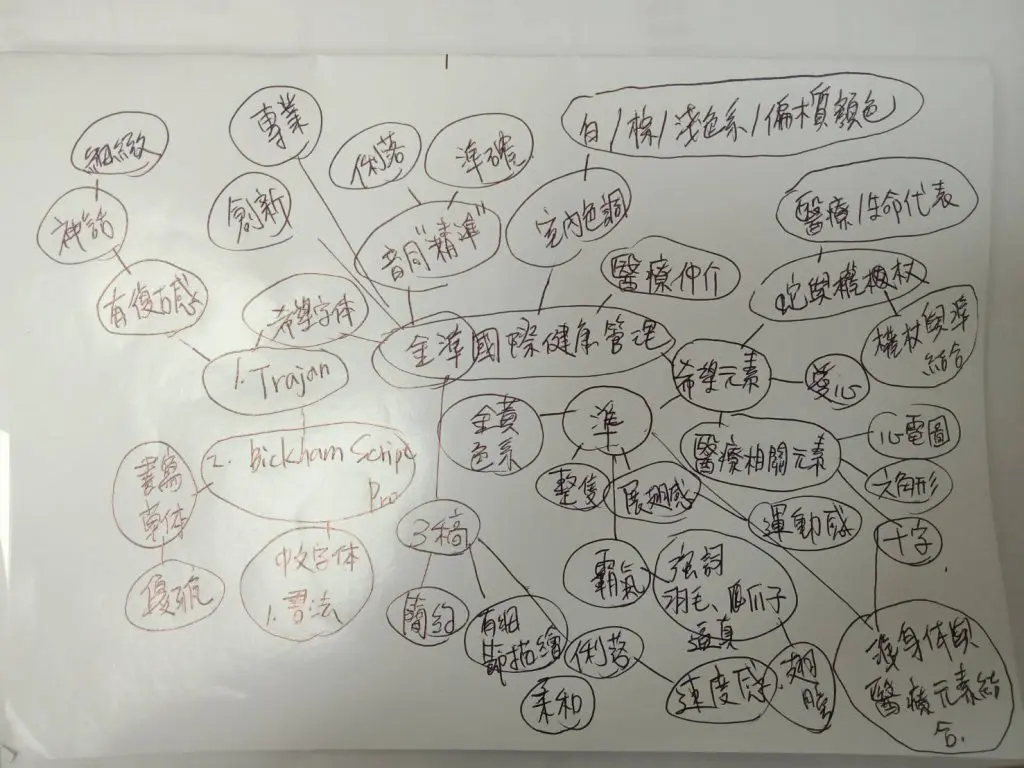 細緻
神話
有復古感
專業
創新
俐落
準確
音同"精準"
希望字体
1. Trajan
2. Bickham Script
Pro
書寫
草体
優雅
中文字体
1. 書法
白/棕/淺色系/偏木質顏色
室內色調
醫療仲介
金準國際健康管理
醫療/生命代表
蛇與權杖
權杖與準
結合
希望元素
愛心
醫療相關元素
心電圖
六角形
十字
準
金黃
色系
整隻
展翅感
運動感
霸氣
強調
羽毛、爪子
逼真
翅膀
速度感
俐落
3稿
簡約
有細
節描繪
柔和
身体與
醫療元素結
合.